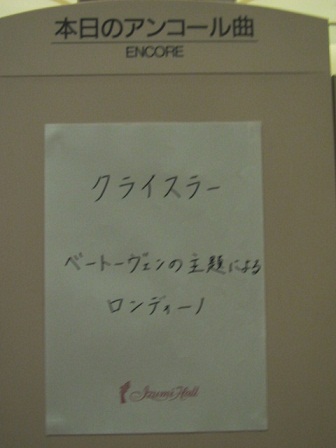 本日のアンコール曲
ENCORE
クライスラー
ベートーヴェンの主題による
ロンディーノ
Izumi Hall